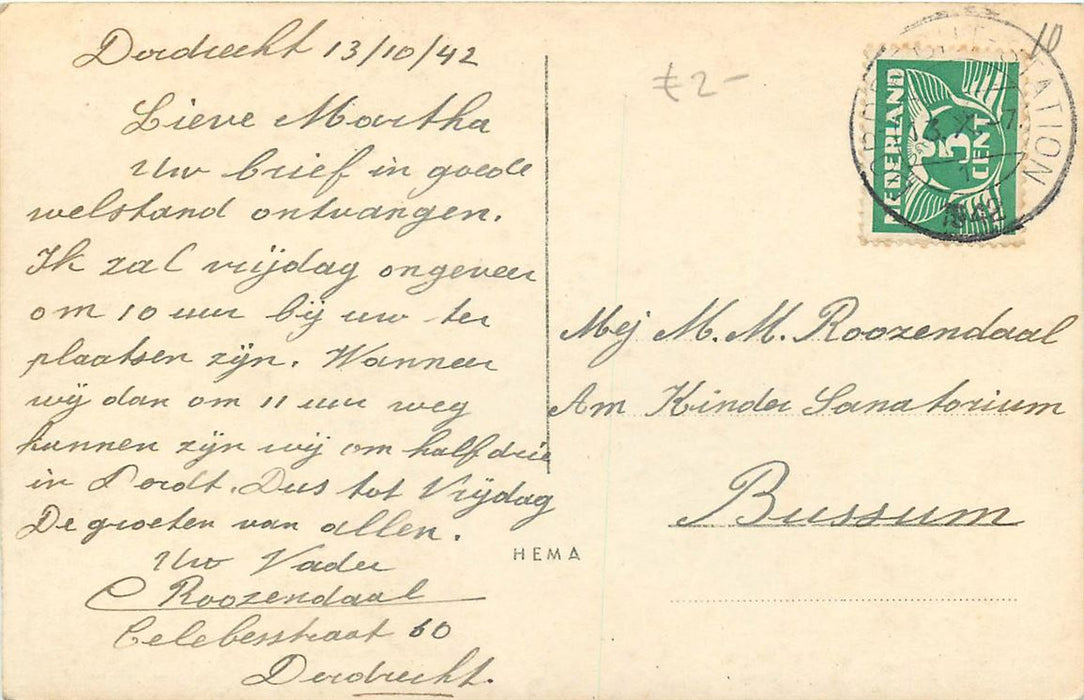 Dordrecht 13/10/42
Lieve Martha
Uw brief in goede
welstand ontvangen.
Ik zal vrijdag ongeveer
om 10 uur bij uw ter
plaatsen zijn. Wanneer
wij dan om 11 uur weg
kunnen zijn wij om half drie
in Dordt. Dus tot Vrijdag
De groeten van allen.
Uw Vader
C Roozendaal
Celebesstraat 60
Dordrecht.
HEMA
£2-
10
NEDERLAND
5
CENT
STATION
1942
Mej M. M. Roozendaal
Am Kinder Sanatorium
Bussum